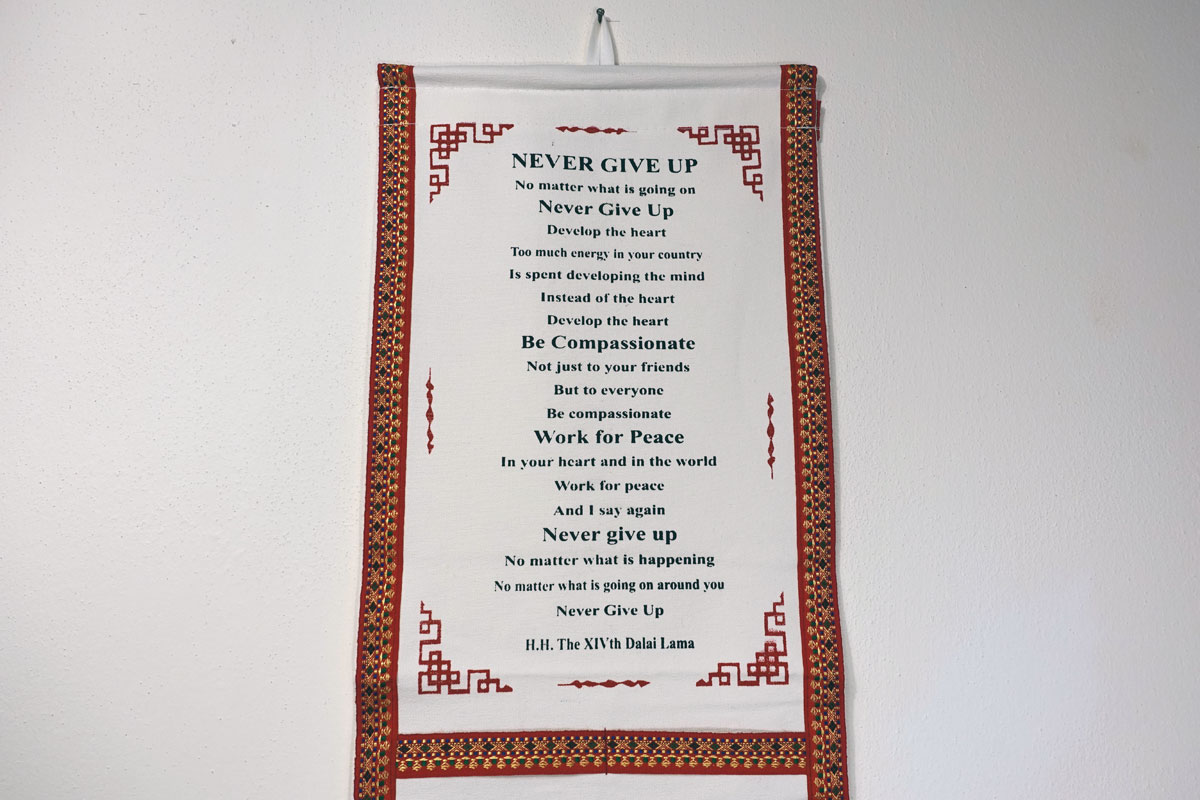 NEVER GIVE UP
No matter what is going on
Never Give Up
Develop the heart
Too much energy in your country
Is spent developing the mind
Instead of the heart
Develop the heart
Be Compassionate
Not just to your friends
But to everyone
Be compassionate
Work for Peace
In your heart and in the world
Work for peace
And I say again
Never give up
No matter what is happening
No matter what is going on around you
Never Give Up
H.H. The XIVth Dalai Lama